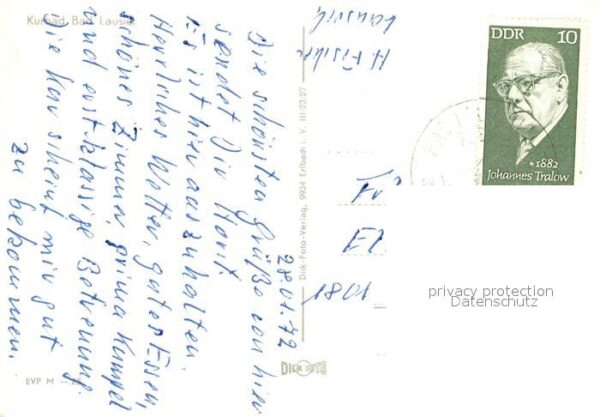 Kurbad Bad Lausick
28.01.72
Die schönsten Grüße von hier
sendet Dir Horst.
Es ist hier auszuhalten
Herrliches Wetter, gutes Essen,
schönes Zimmer, prima Kumpel
und erstklassige Betreuung.
Die Kur scheint mir gut
zu bekommen.
EVP M
Dick-Foto-Verlag, 9934 Erlbach i. V. III-23-27
DICK FOTO
H. Fischer
Lausick
DDR 10
*1882
Johannes Tralow
Fr
El
1801
privacy protection
Datenschutz